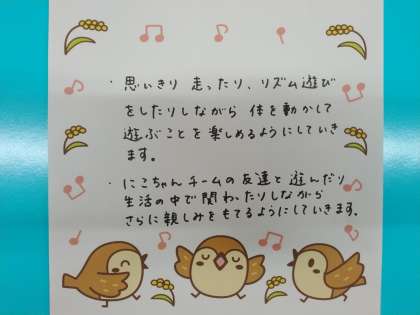 ・思いきり 走ったり、リズム遊び
をしたりしながら 体を動かして
遊ぶことを楽しめるようにしていき
ます。
・にこちゃんチームの友達と遊んだり
生活の中で関わったりしながら
さらに親しみをもてるようにしていきます。